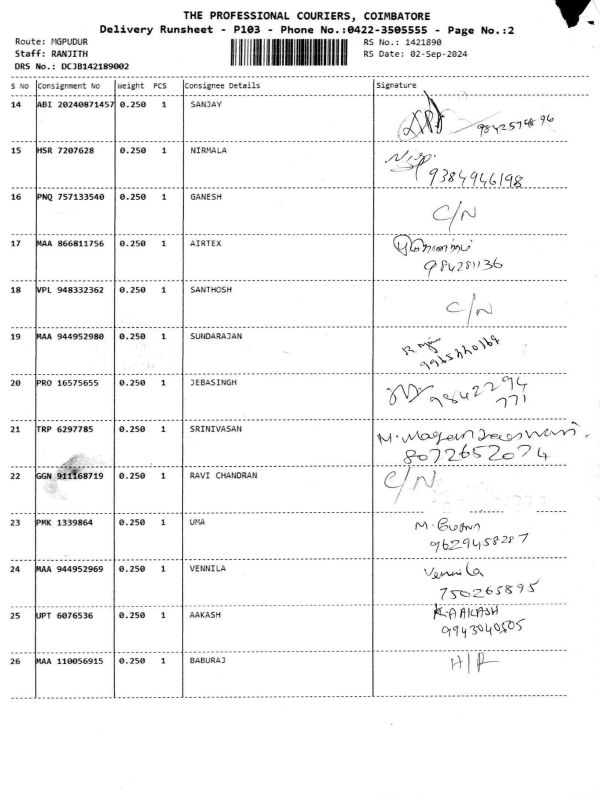 THE PROFESSIONAL COURIERS, COIMBATORE
Delivery Runsheet - P103 - Phone No.:0422-3505555 - Page No.:2
Route: MGPUDUR RS No.: 1421890
Staff: RANJITH RS Date: 02-Sep-2024
DRS No.: DCJB142189002
S No Consignment No Weight PCS Consignee Details Signature
14 ABI 20240871457 0.250 1 SANJAY
15 HSR 7207628 0.250 1 NIRMALA
9384946198
16 PNQ 757133540 0.250 1 GANESH
C/N
17 MAA 866811756 0.250 1 AIRTEX
984281136
18 VPL 948332362 0.250 1 SANTHOSH
C/N
19 MAA 944952980 0.250 1 SUNDARAJAN
20 PRO 16575655 0.250 1 JEBASINGH
9842294
771
21 TRP 6297785 0.250 1 SRINIVASAN
8072652074
22 GGN 911168719 0.250 1 RAVI CHANDRAN
C/N
23 PMK 1339864 0.250 1 UMA
9629458287
24 MAA 944952969 0.250 1 VENNILA
Vennila
750265895
25 UPT 6076536 0.250 1 AAKASH
K.AAKASH
9943040505
26 MAA 110056915 0.250 1 BABURAJ